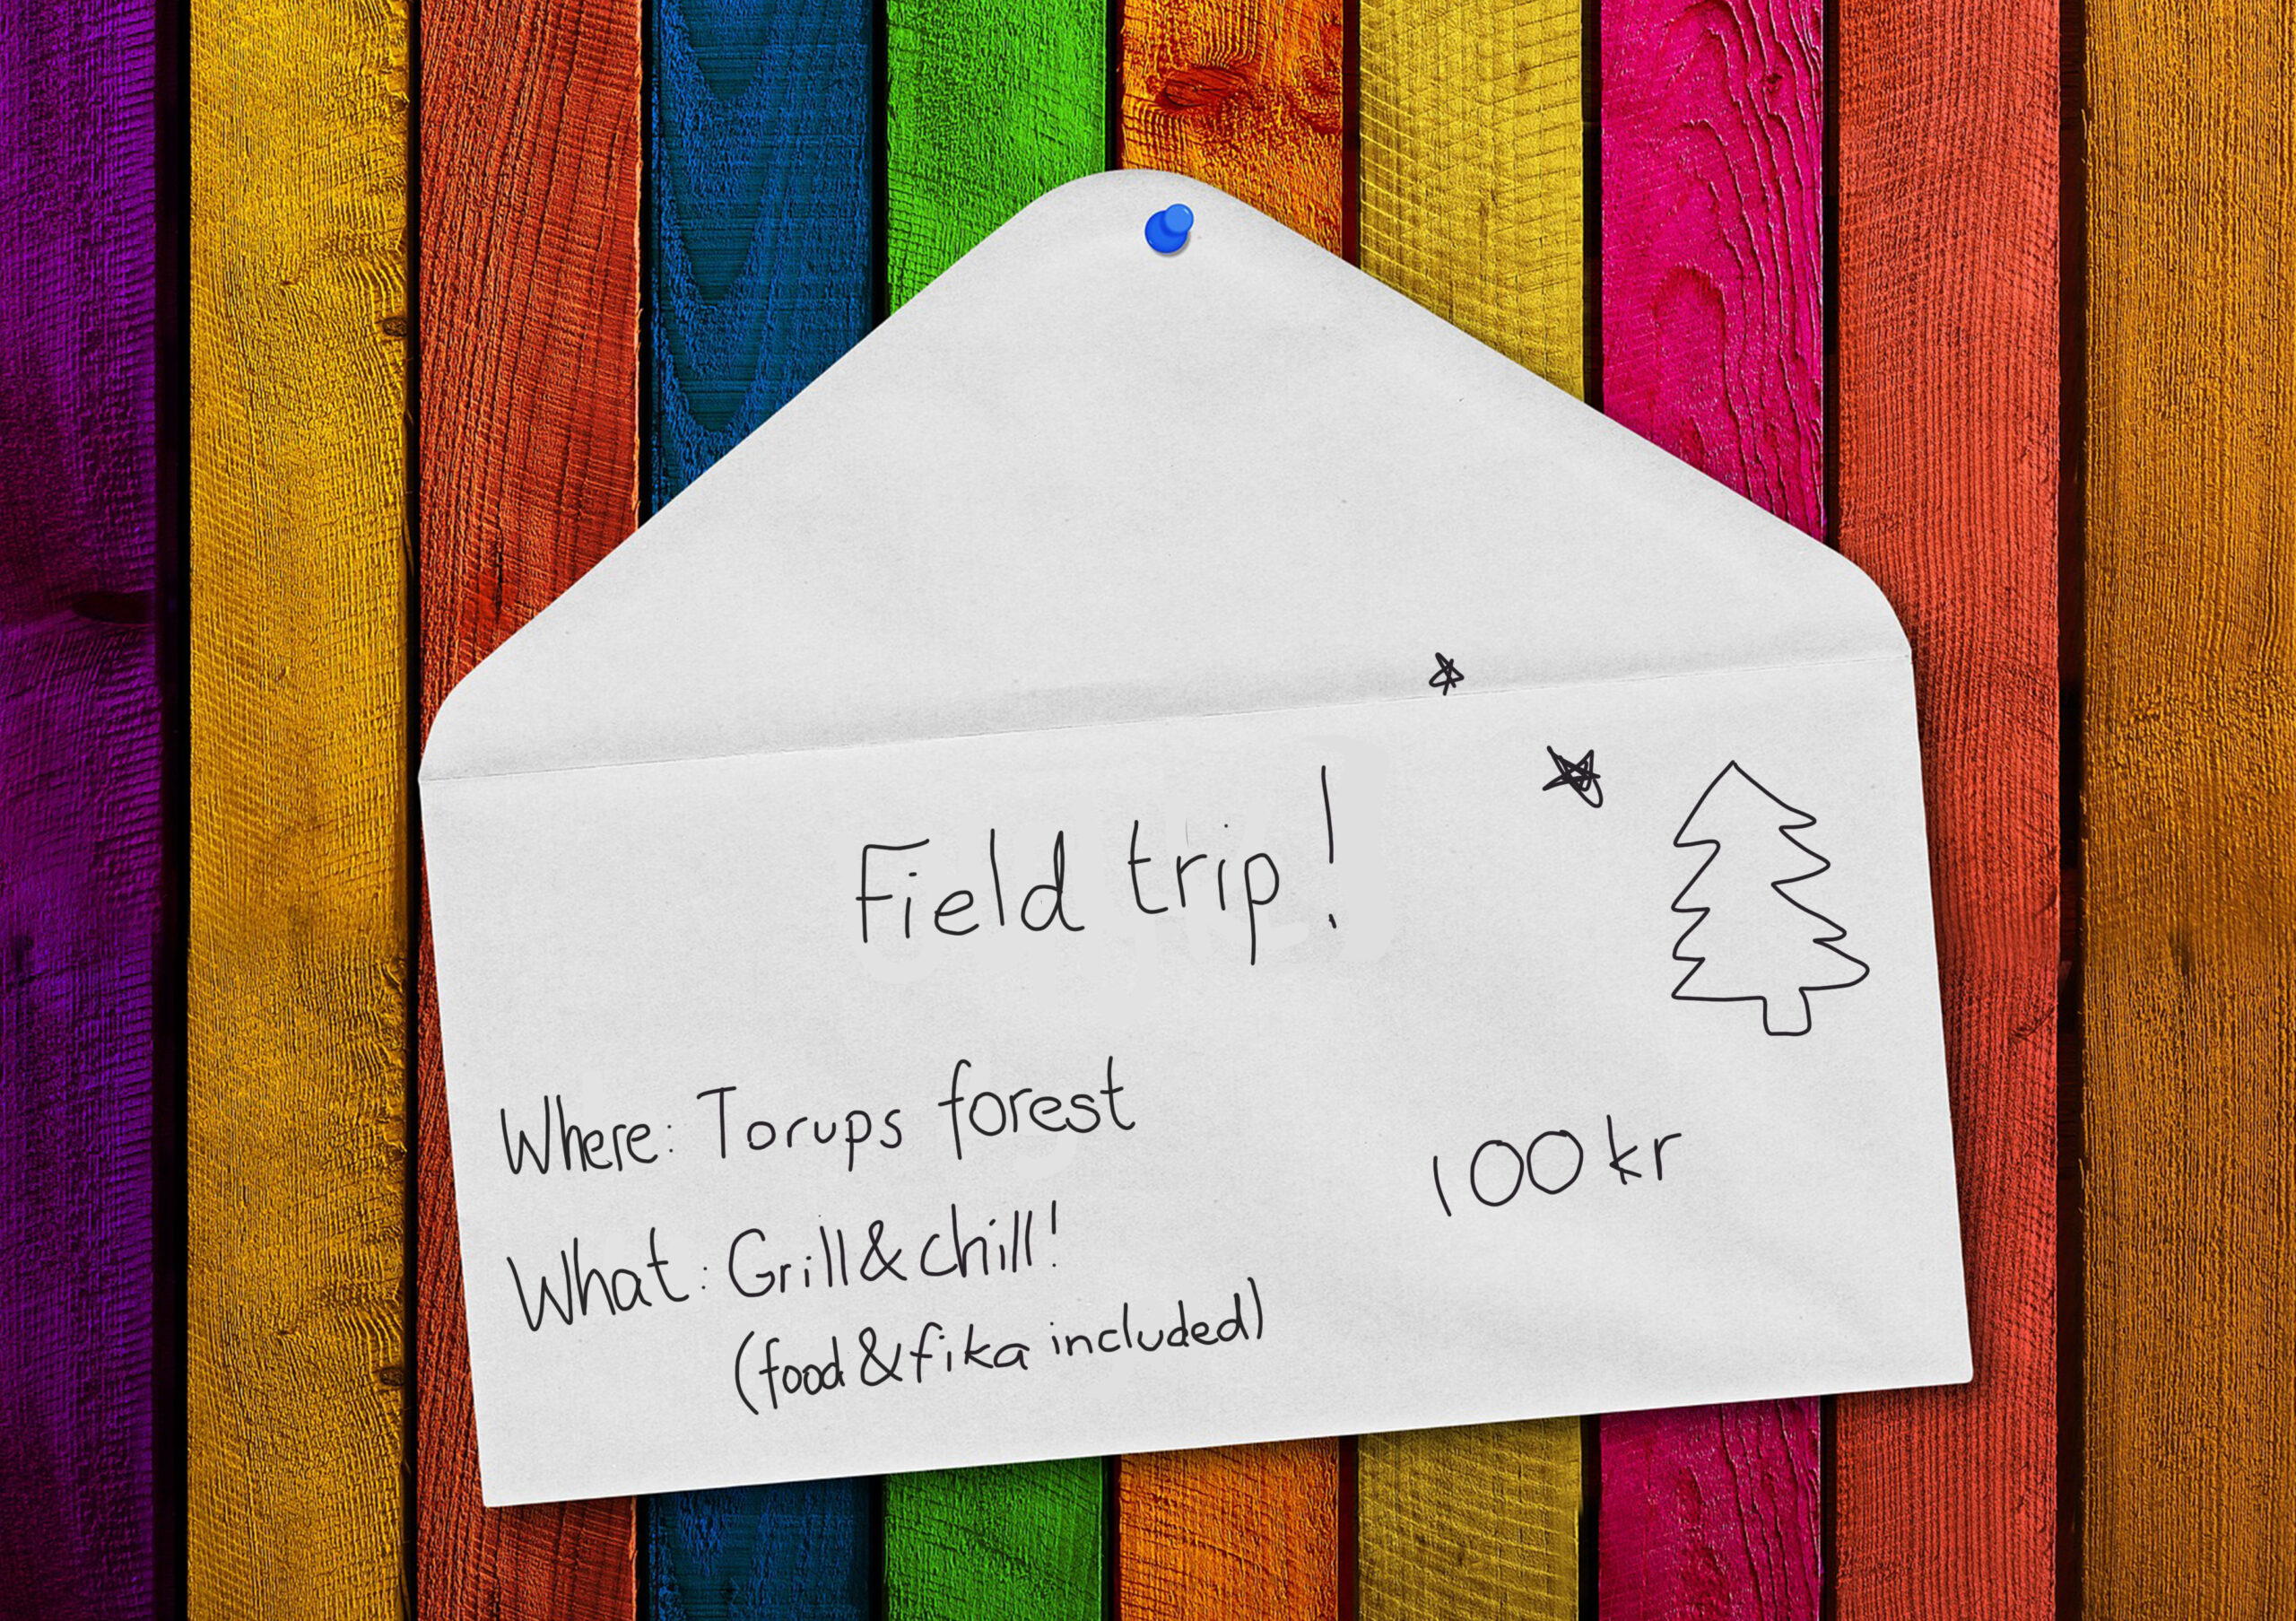 Field trip!
Where: Torups forest
100 kr
What: Grill & chill!
(food & fika included)